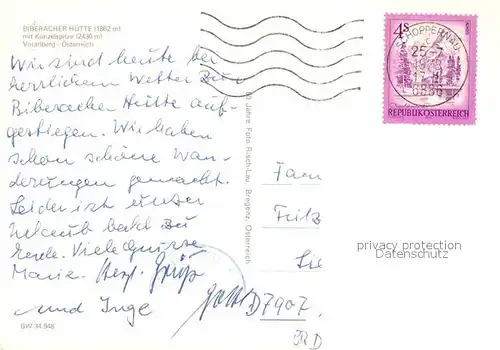 BIBERACHER HÜTTE (1862 m)
mit Künzelspitze (2430 m)
Vorarlberg - Österreich
Wir sind heute bei
herrlichem Wetter zur
Biberacher Hütte auf-
gestiegen. Wir haben
schon schöne Wan-
derungen gemacht.
Leider ist unser
Urlaub bald zu
Ende. Viele Grüsse
Marie. Herzl. Grüße
und Inge
BW 34.948
Jahre Foto Risch-Lau, Bregenz, Österreich
4S
REPUBLIK ÖSTERREICH
SCHOPPERNAU
25.-7.
17
6886
Fam
Fritz
D 7907
privacy protection
Datenschutz